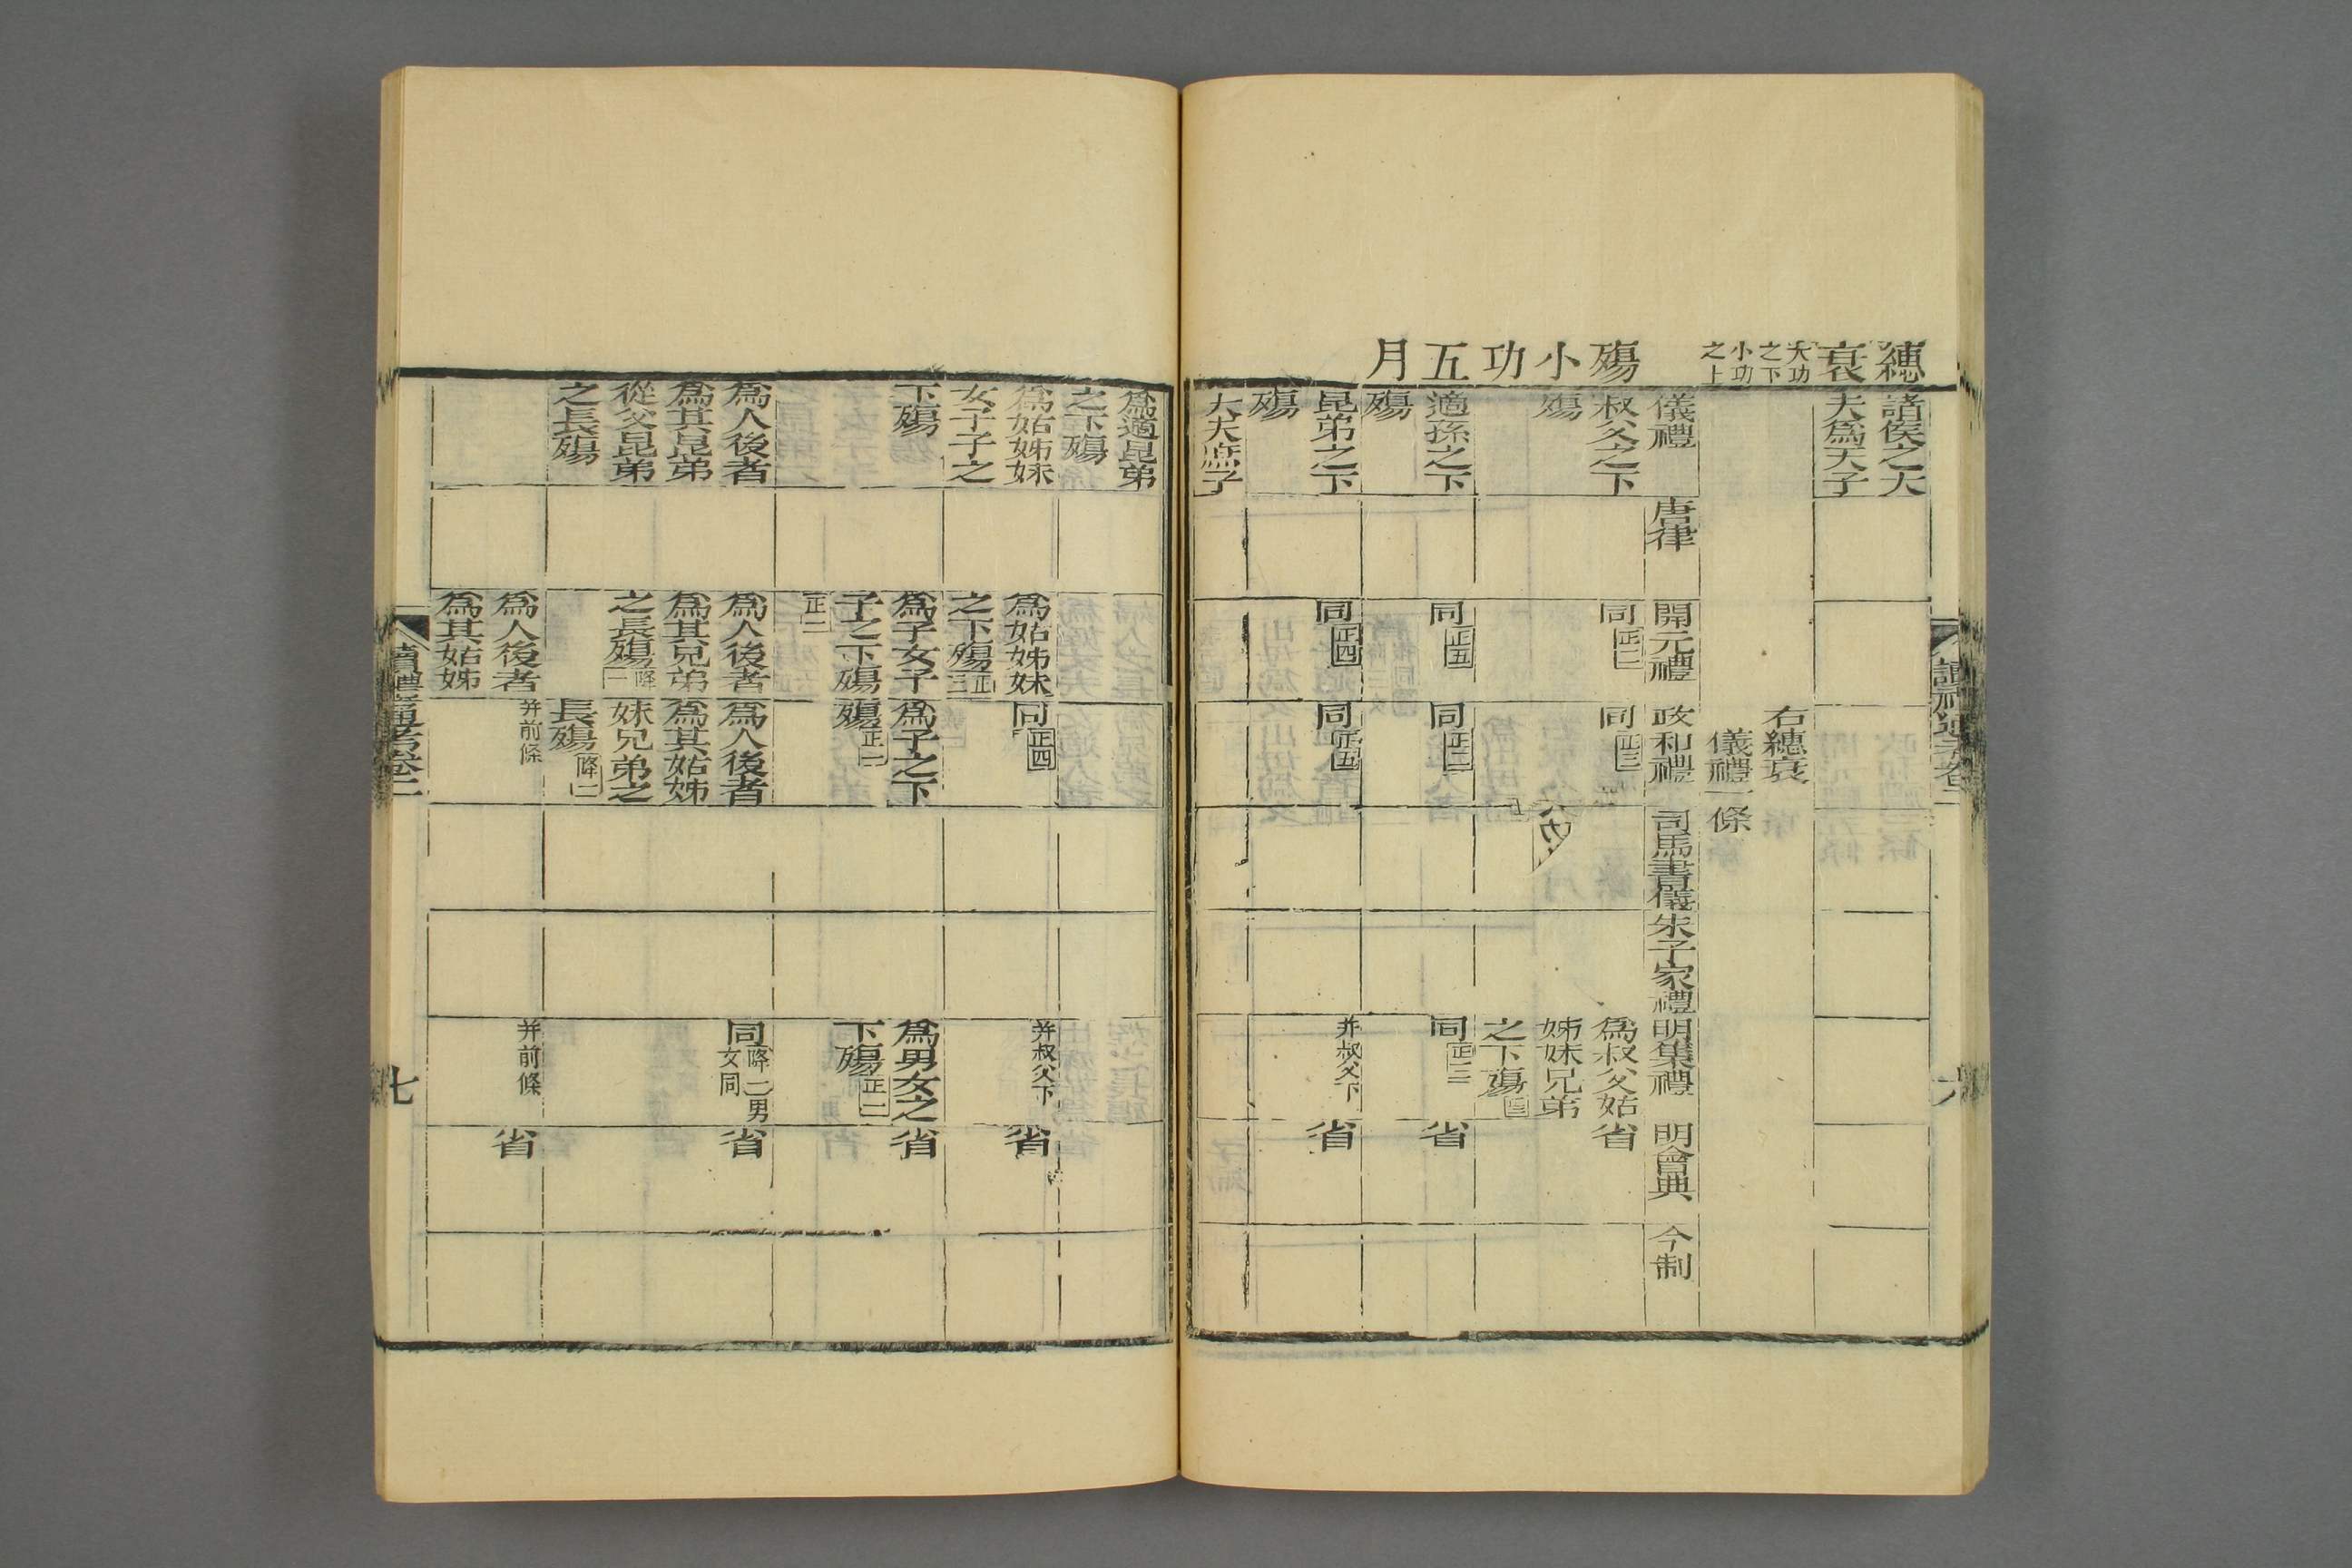 繐衰
大功之下小功之上
殤小功五月
諸侯之大
夫爲天子
右繐衰
儀禮一條
儀禮
唐律
開元禮
政和禮
司馬書儀
朱子家禮
明集禮
明會典
今制
叔父之下
殤
同正二
同正三
爲叔父姑
姊妹兄弟
之下殤
省
適孫之下
殤
同正五
同正二
同正三
省
昆弟之下
殤
同正四
同正五
并叔父下
省
大夫庶子
讀禮通考卷二
六
爲適昆弟
之下殤
爲姑姊妹
女子子之
下殤
爲姑姊妹
之下殤正三
同正四
并叔父下
省
爲子女子
子之下殤
正二
爲子之下
殤正一
爲男女之
下殤正二
省
爲人後者
爲其昆弟
從父昆弟
之長殤
爲人後者
爲其兄弟
之長殤降一
爲人後者
爲其姑姊
妹兄弟之
長殤降二
同降二男女同
省
爲人後者
爲其姑姊
并前條
并前條
省
讀禮通考卷二
七